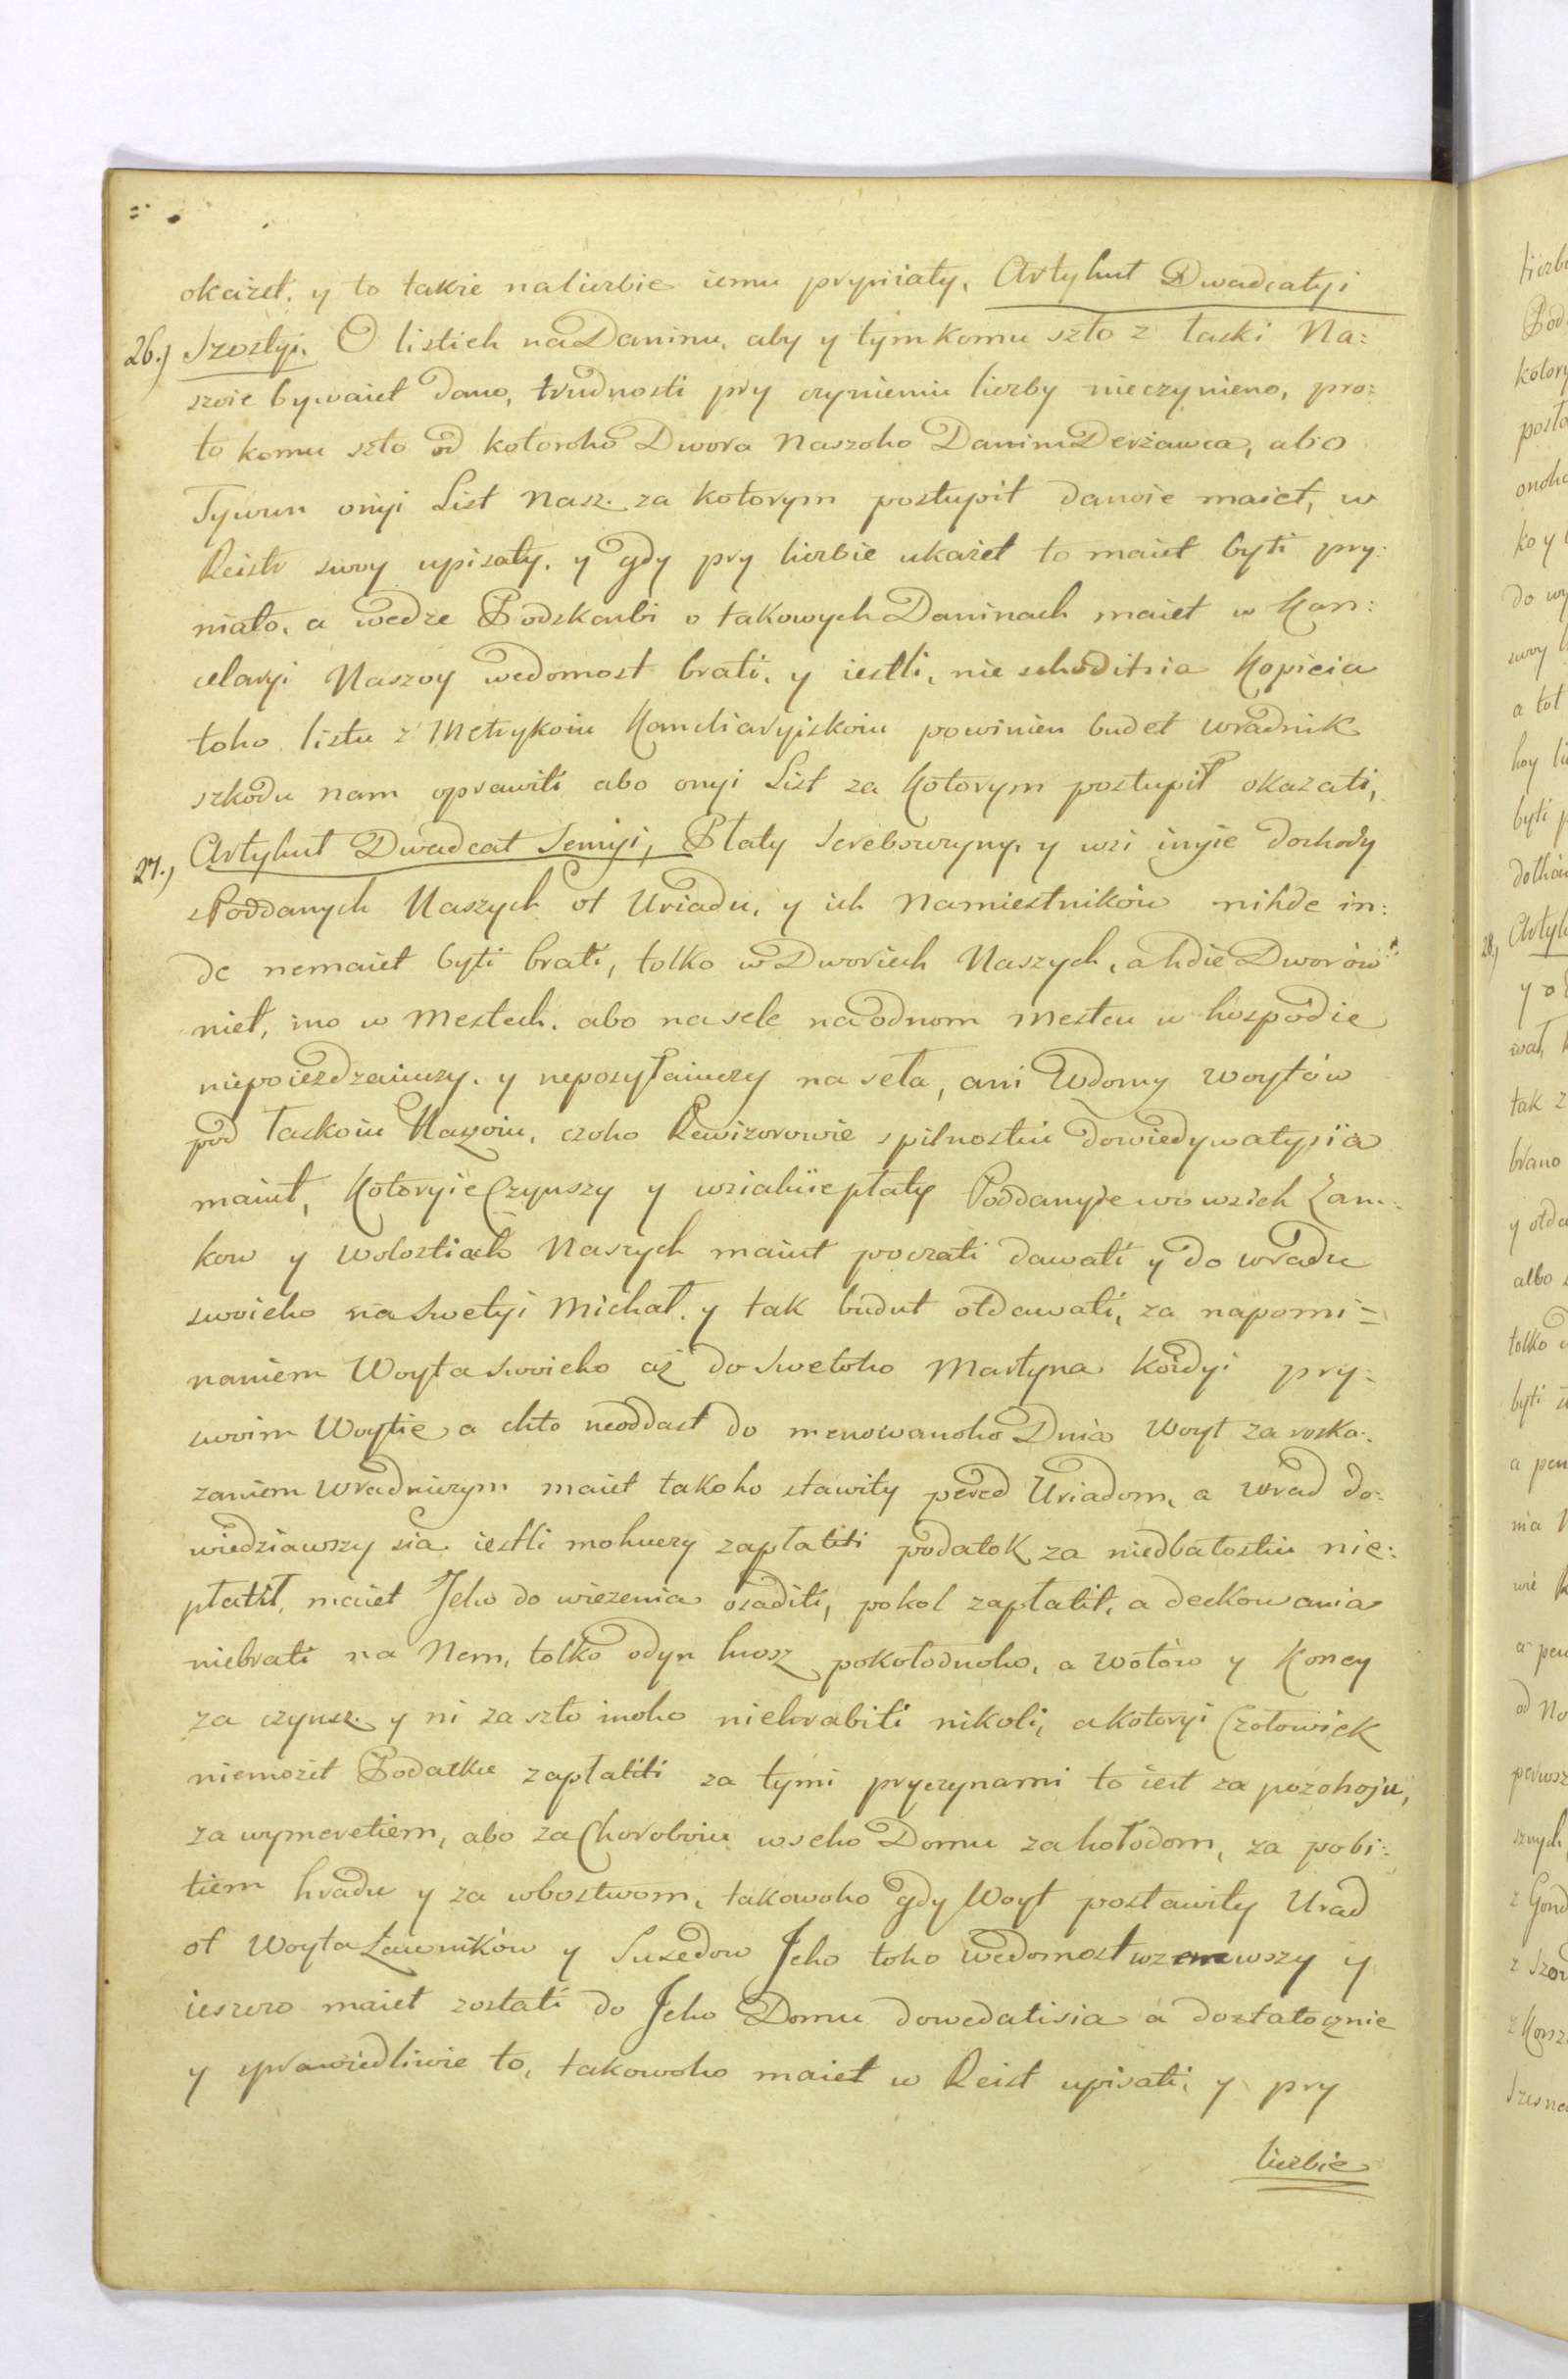 okażet, y to takie naliczbie iemu pryniaty, Artykuł Dwadcatyi
26.) Szostyi. O listich na Daninu, aby y tym komu szto z łaski Na:
szoie bywaiet dano, trudnosti pry czynieniu liczby nieczynieno, pro:
to komu szto od kotoroho Dwora Naszoho Daninu Derżawca, abo
Tywun onyi List Nasz. za kotorym postupit danoie maiet, w
Reistr swoy upisaty. y gdy pry liczbie ukażet to maiet byti pry:
niato, a wedże Podskarbi o takowych Daninach maiet w Kan:
celaryi Naszoy wedomost brati, y iestli, nie schoditsia Kopieia
toho listu z Metrykoiu Kancliaryiskoiu powinien budet wradnik
szkodu nam oprawiti abo onyi List za Kotorym postupił okazati,
27.) Artykuł Dwadcat Semyi, Płaty Serebowzyny, y wsi inyie dochody
z Poddanych Naszych ot Uriadu, y ich Namiestników nihde in:
de nemaiet byti brati, tolko w Dworiech Naszych, a hdie Dworów
niet, ino w Mestech. abo na sele na odnom Mestcu w hospodie
niepoiezdzaiuczy. y neposyłaiuczy na seła, ani Wdomy Woytów
pod łaskoiu Naszoiu, czoho Rewizorowie spilnostiu dowiedywatysia
maiut, Kotoryie Czynszy y wsiakiie płaty Poddanyie wo wsich Zam:
kow y Wołostiach Naszych maiut poczati dawati y do wradu
swoieho na Swetyi Michał. y tak budut otdawati, za napomi=
naniem Woyta Swoieho aż do Swetoho Martyna Kożdyi pry:
swoim Woytie a chto neoddast do menowanoho Dnia Woyt za roska:
zaniem wradniczym maiet takoho stawity pered Uriadom, a wrad do:
wiedziawszy sia iestli mohuczy zapłatiti podatok za niedbałostiu nie:
płatił, maiet Jeho do wiezenia osaditi, pokol zapłatit, a deckowania
niebrati na Nem, tolko odyn hrosz pokołodnoho, a Wołów y Koney
za czynsz y ni za szto inoho niehrabiti nikoli, a Kotoryi Czołowiek
niemożet Podatku zapłatiti za tymi pryczynami to iest za pożohoju,
za wymeretiem, abo za Choroboiu wseho Domu za hołodom, za pobi:
tiem hradu y za wbostwom, takowoho gdy Woyt postawity Urad
ot Woyta Ławników y Susedow Jeho toho wedomost wzemwszy y
ieszczo maiet zostati do Jeho Domu dowedatisia a dostatocznie
y sprawiedliwie to, takowoho maiet w Reist upisati, y pry
liczbie